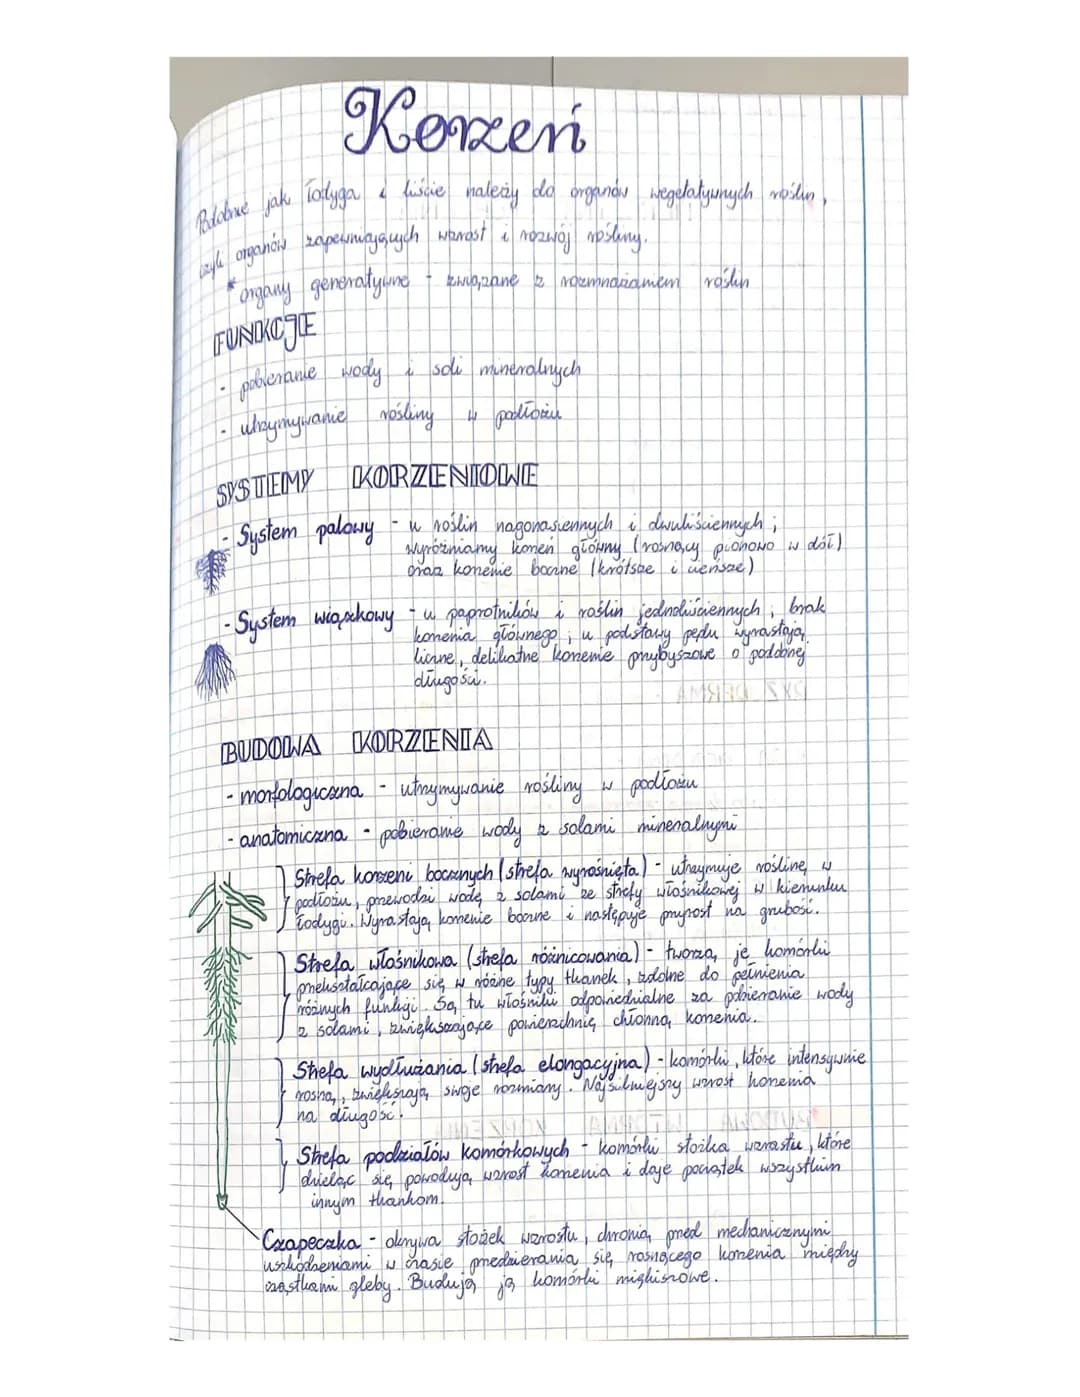 Korzeń
Podobnie jak łodyga i liście należy do organów wegetatywnych roślin,
czyli organów zapewniających wzrost i rozwój rośliny.
* organy generatywne - związane z rozmnażaniem roślin
FUNKCJE
- pobieranie wody i soli mineralnych
- utrzymywanie rośliny w podłożu
SYSTEMY KORZENIOWE
- System palowy - u roślin nagonasiennych i dwuliściennych;
wyróżniamy korzeń główny (rosnący pionowo w dół)
oraz korzenie boczne (krótsze i cieńsze)
- System wiązkowy - u paprotników i roślin jednoliściennych; brak
korzenia głównego; u podstawy pędu wyrastają
liczne, delikatne korzenie przybyszowe o podobnej
długości.
BUDOWA KORZENIA
- morfologiczna - utrzymywanie rośliny w podłożu
- anatomiczna - pobieranie wody z solami mineralnymi
Strefa korzeni bocznych (strefa wyrośnięta) - utrzymuje roślinę w
podłożu, przewodzi wodę z solami ze strefy włośnikowej w kierunku
łodygi. Wyrastają korzenie boczne i następuje przyrost na grubość.
Strefa włośnikowa (strefa różnicowania) - tworzą je komórki
przekształcające się w różne typy tkanek, zdolne do pełnienia
różnych funkcji. Są tu włośniki odpowiedzialne za pobieranie wody
z solami, zwiększające powierzchnię chłonną korzenia.
Strefa wydłużania (strefa elongacyjna) - komórki, które intensywnie
rosną, zwiększają swoje rozmiary. Najsilniejszy wzrost korzenia
na długość.
Strefa podziałów komórkowych - komórki stożka wzrastu, które
dzieląc się powodują wzrost korzenia i daje początek wszystkim
innym tkankom.
Czapeczka - okrywa stożek wzrostu, chronią przed mechanicznymi
uszkodzeniami w czasie przedzierania się rosnącego korzenia między
cząstkami gleby. Budują ją komórki miękiszowe.